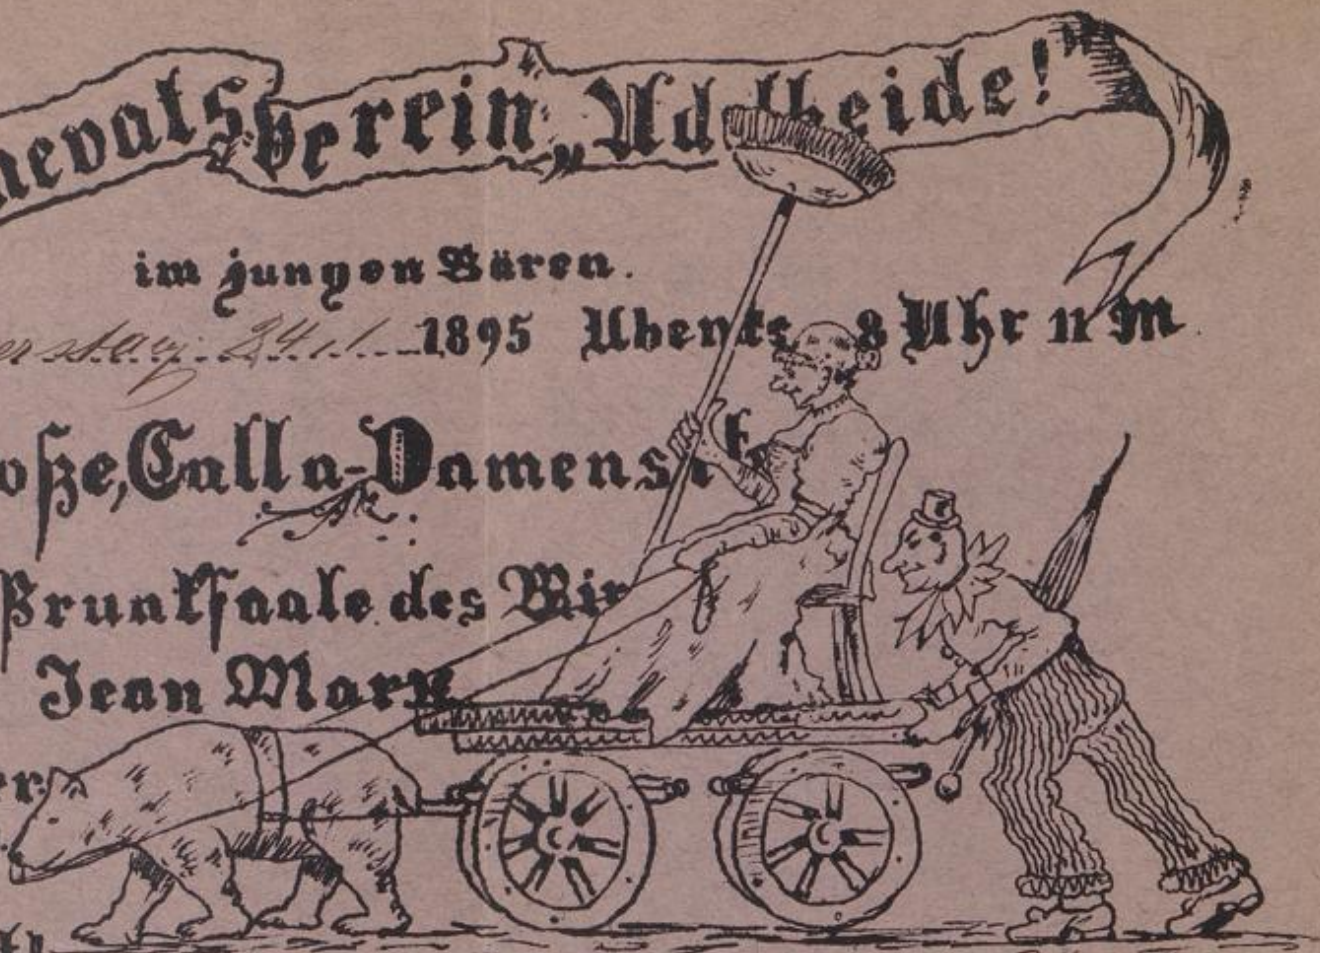 nevals Verein „Adelheide!
im jungen Bären.
erstag 24/1 1895 Abents 8 Uhr 11 M
oße, Calla-Damensit
Prunksaale des Wir
Jean Marx
er